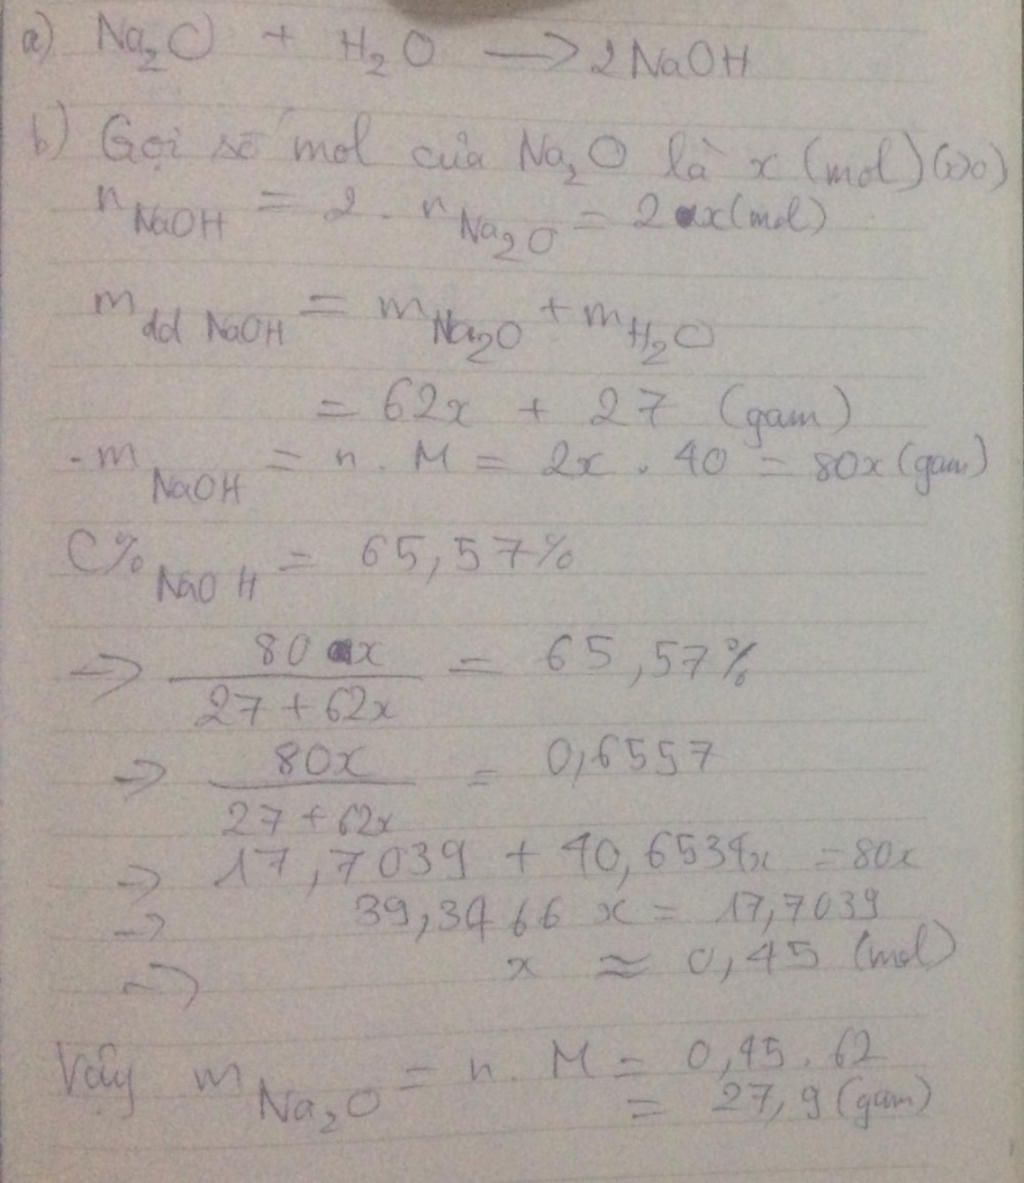 a) Na₂O + H₂O → 2NaOH
b) Gọi số mol của Na₂O là x (mol) (x>0)
n NaOH = 2 . n Na₂O = 2x (mol)
m dd NaOH = m Na₂O + m H₂O
= 62x + 27 (gam)
- m NaOH = n . M = 2x . 40 = 80x (gam)
C% NaOH = 65,57%
=> 80x / 27 + 62x = 65,57%
=> 80x / 27 + 62x = 0,6557
=> 17,7039 + 40,6534x = 80x
=> 39,3466 x = 17,7039
=> x ≈ 0,45 (mol)
Vậy m Na₂O = n . M = 0,45 . 62
= 27,9 (gam)